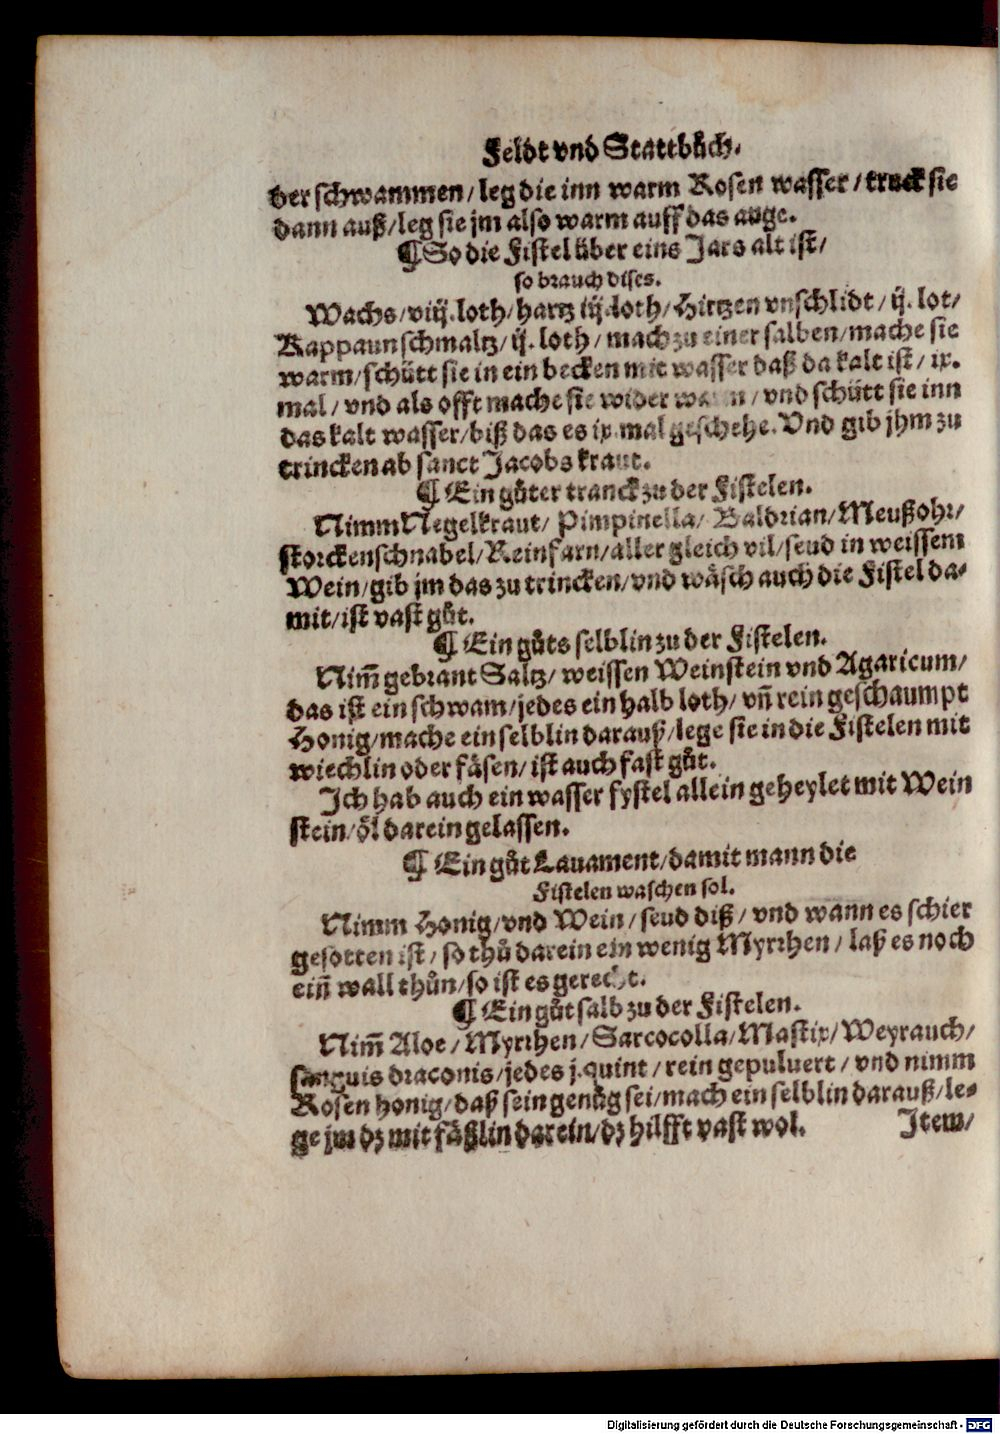 Feldt vnd Stattbůch.
der schwammen / leg die inn warm Rosen wasser / truck sie
dann auß / leg sie jm also warm auff das auge.
¶ So die Fistel über eins Jars alt ist /
so brauch dises.
Wachs / viij. loth / hartz iij. loth / Hirtzen vnschlidt / ij. lot /
Kappaunschmaltz / ij. loth / mach zu einer salben / mache sie
warm / schütt sie in ein becken mit wasser daß da kalt ist / ix.
mal / vnd als offt mache sie wider warm / vnd schütt sie inn
das kalt wasser / biß das es ix. mal geschehe. Vnd gib jhm zu
trincken ab sanct Jacobs kraut.
¶ Ein gůter tranck zu der Fistelen.
Nimm Negelkraut / Pimpinella / Baldrian / Meußohr /
storckenschnabel / Reinfarn / aller gleich vil / seud in weissem
Wein / gib jm das zu trincken / vnd wäsch auch die Fistel da-
mit / ist vast gůt.
¶ Ein gůts selblin zu der Fistelen.
Nim̃ gebrant Saltz / weissen Weinstein vnd Agaricum /
das ist ein schwam / jedes ein halb loth / vñ rein geschaumpt
Honig / mache ein selblin darauß / lege sie in die Fistelen mit
wiechlin oder fäsen / ist auch fast gůt.
Ich hab auch ein wasser fystel allein geheylet mit Wein
stein / öl darein gelassen.
¶ Ein gůt Lauament / damit mann die
Fistelen waschen sol.
Nimm Honig / vnd Wein / seud diß / vnd wann es schier
gesotten ist / so thů darein ein wenig Myrrhen / laß es noch
eiñ wall thůn / so ist es gerecht.
¶ Ein gůt salb zu der Fistelen.
Nim̃ Aloe / Myrrhen / Sarcocolla / Mastix / Weyrauch /
sanguis draconis / jedes j. quint / rein gepuluert / vnd nimm
Rosen honig / daß sein genůg sei / mach ein selblin darauß / le-
ge jm dz mit fäßlin darein / dz hilfft vast wol. Item /
Digitalisierung gefördert durch die Deutsche Forschungsgemeinschaft - DFG